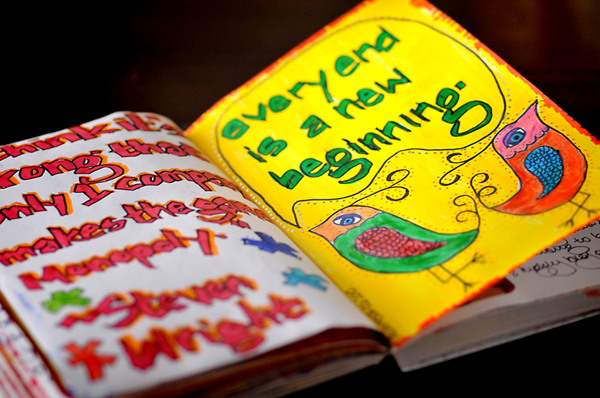 think it's
wrong, that
only 1 company
makes the game
Monopoly.
~Steven
Wright
every end
is a new
beginning.